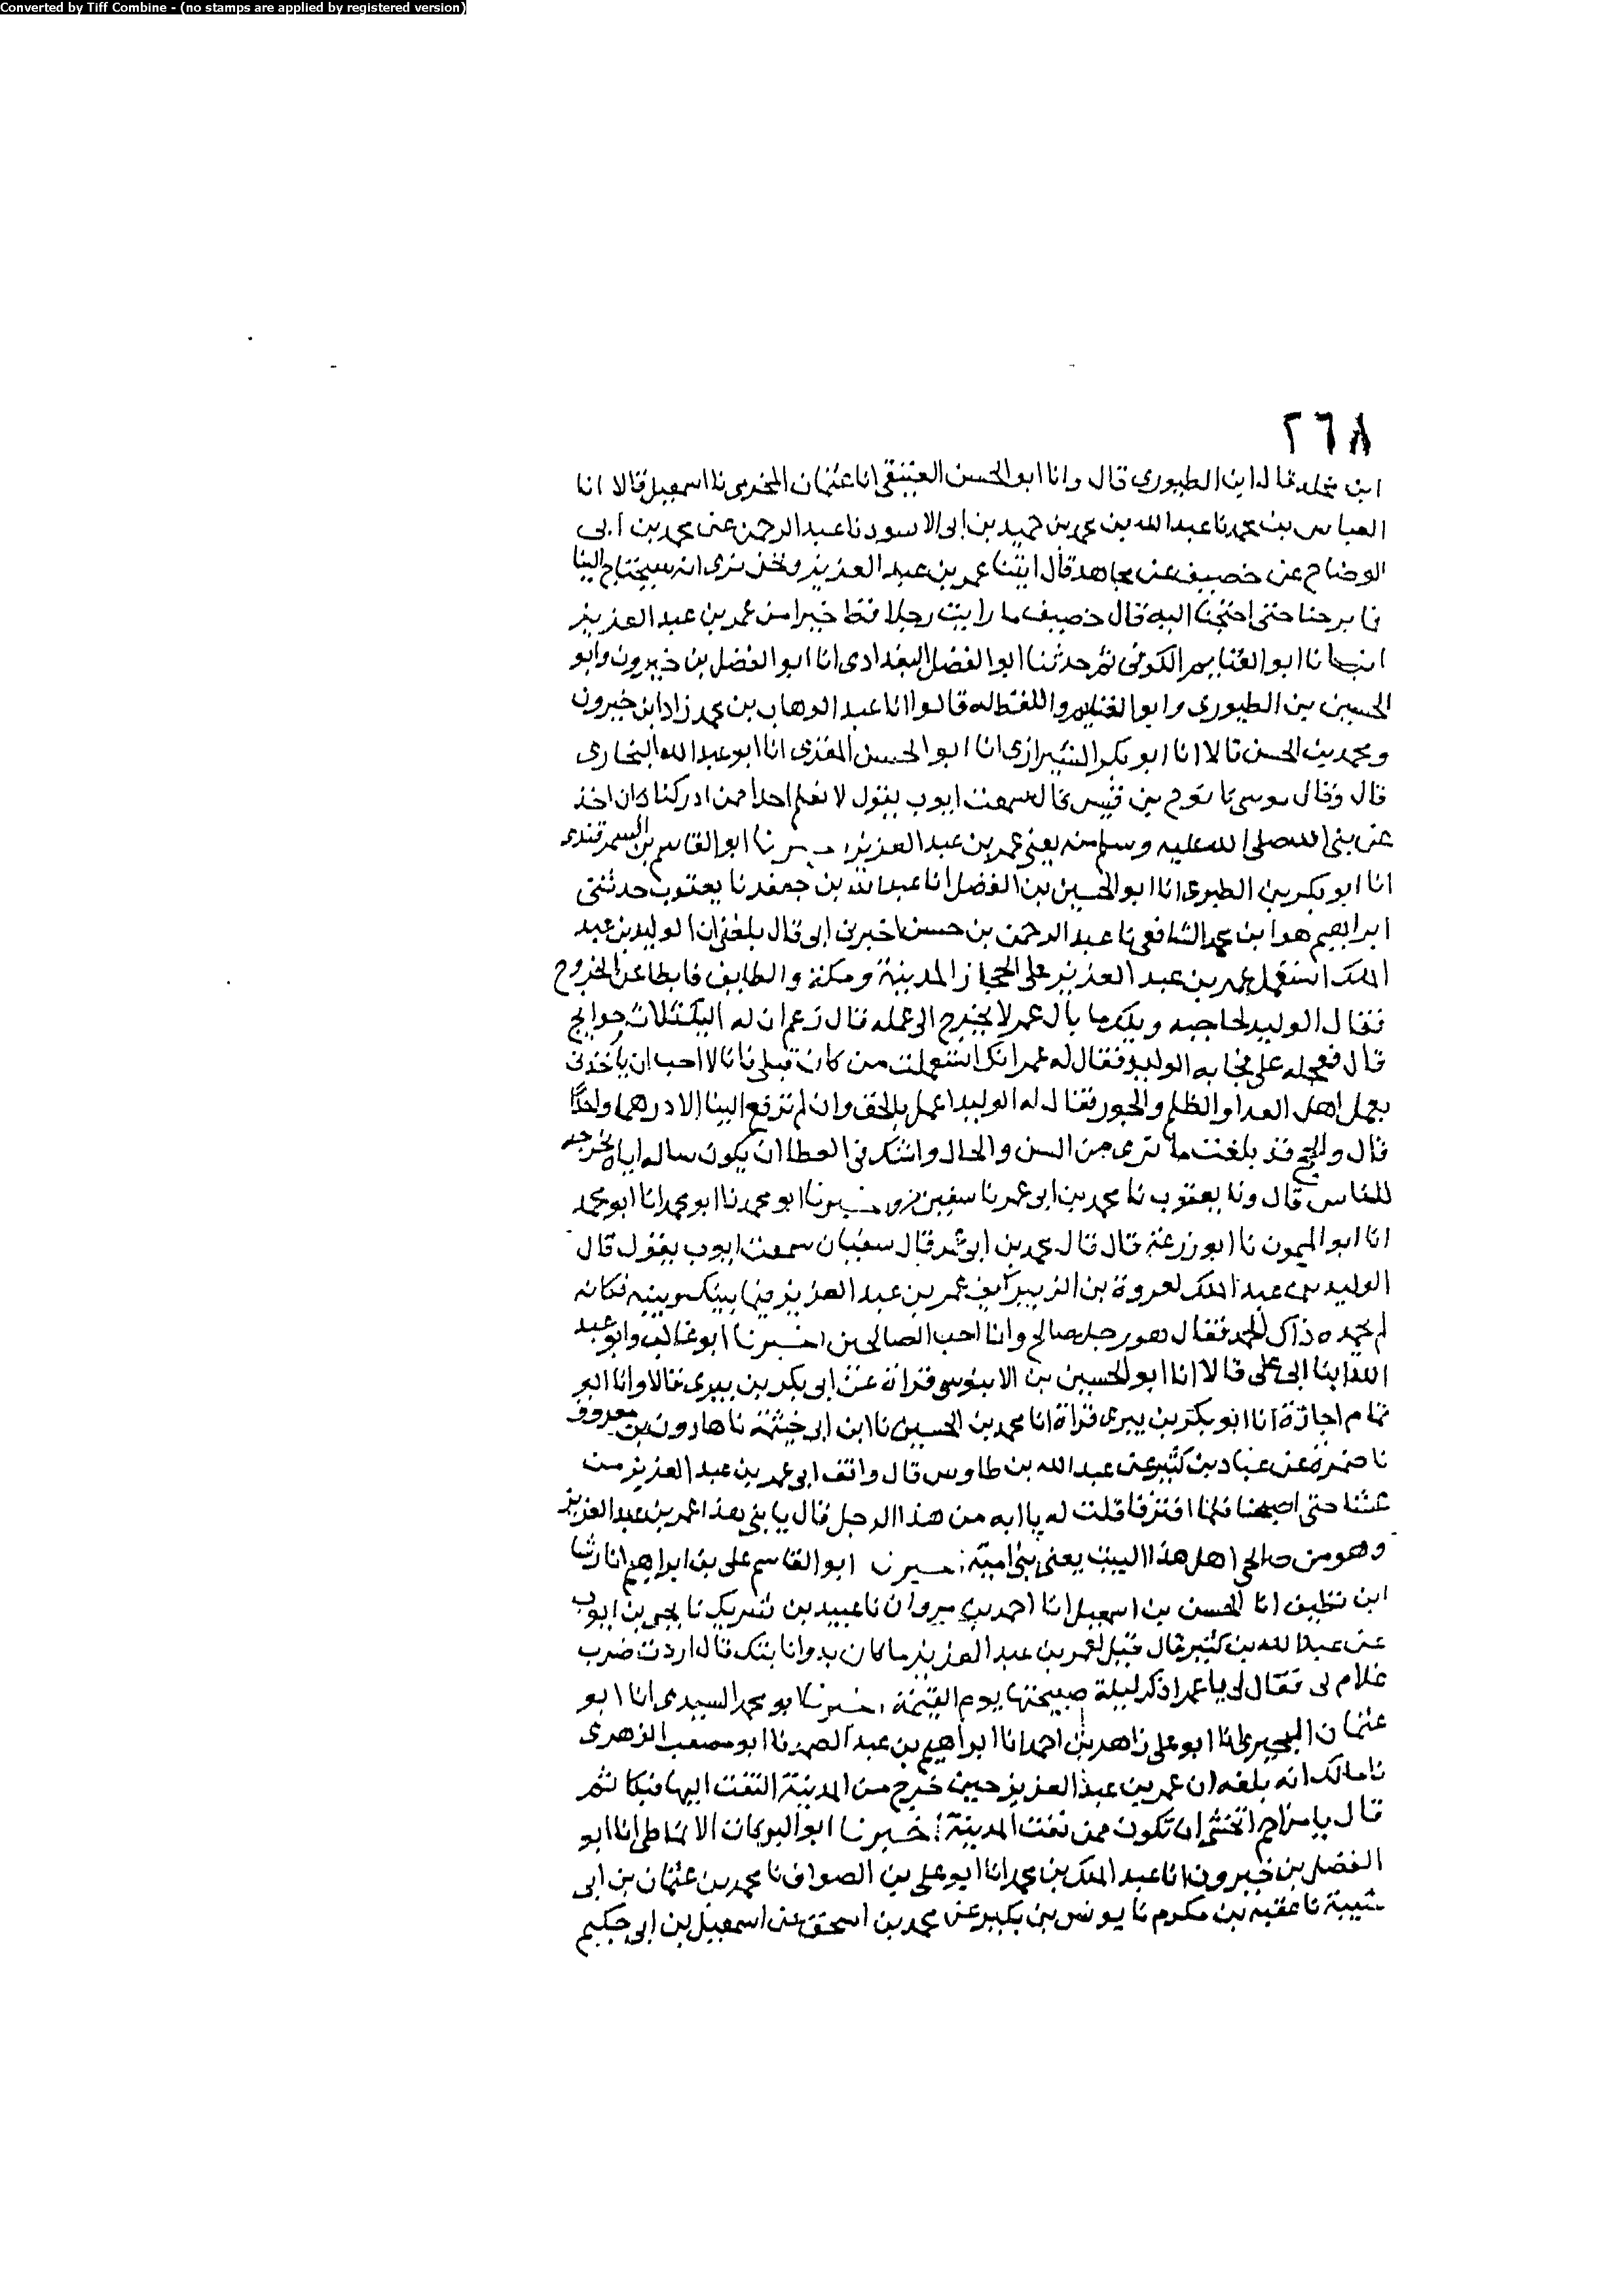 Converted by Tiff Combine - (no stamps are applied by registered version)
٢٦٨
ابن مخلد قالا ابن الطيوري قال وانا ابو الحسن العتيقي انا عثمان المخرمي نا اسمعيل قالا انا
العباس بن محمد نا عبد الله بن محمد بن حميد بن ابي الاسود نا عبد الرحمن عن محمد بن ابي
الوضاح عن خصيف عن مجاهد قال اتينا عمر بن عبد العزيز ونحن نرى انه سيحتاج الينا
فما برحنا حتى احتجنا اليه قال خصيف ما رايت رجلا قط خيرا من عمر بن عبد العزيز
انبانا ابو الغنايم الكوفي ثم حدثنا ابو الفضل البغدادي انا ابو الفضل بن خيرون وابو
الحسين بن الطيوري وابو الغنايم واللفظ له قالوا انا عبد الوهاب بن محمد زاد ابن خيرون
ومحمد بن الحسن قالا انا ابو بكر الشيرازي انا ابو الحسن المقري انا ابو عبد الله البخاري
قال وقال موسى نا نوح بن قيس قال سمعت ايوب يقول لا نعلم احدا ممن ادركنا كان اخذ
عن نبي الله صلى الله عليه وسلم منه يعني عمر بن عبد العزيز نا ابو القاسم بن السمرقندي
انا ابو بكر بن الطبري انا ابو الحسين بن الفضل انا عبد الله بن جعفر نا يعقوب حدثني
ابراهيم هو ابن محمد الشافعي نا عبد الرحمن بن حسن اخبرني ابي قال بلغني ان الوليد بن عبد
الملك استعمل عمر بن عبد العزيز على الحجاز المدينة ومكة والطايف فابطا عن الخروج
فقال الوليد لحاجبه ويلك ما بال عمر لا يخرج الى عمله قال زعم ان له اليك ثلاث حوايج
قال فعجله علي فجا به الوليد فقال له عمر انك استعملت من كان قبلي فانا لا احب ان ياخذني
بعمل اهل العدا والظلم والجور فقال له الوليد اعمل بالحق وان لم ترفع الينا الا درهما واحدا
قال والحج قد بلغت ما ترى من السن والحال واشك في العطا ان يكون ساله اياه يخرجه
للناس قال ونا يعقوب نا محمد بن ابي عمر نا سفين ابو محمد نا ابو محمد انا ابو محمد
انا ابو الميمون نا ابو زرعة قال قال محمد بن ابي عمر قال سفيان سمعت ايوب يقول قال
الوليد بن عبد الملك لعروة بن الزبير كيف عمر بن عبد العزيز فيما بينك وبينه فكانه
لم يحمده ذاك الحمد فقال هو رجل صالح وانا احب الصالحين اخبرنا ابو غالب وابو عبد
الله ابنا ابي علي قالا انا ابو الحسين بن الابنوسي قراة عن ابي بكر بن بيري قالا وانا ابو
تمام اجازة انا ابو بكر بن بيري قراة انا محمد بن الحسين نا ابن ابي خيثمة نا هارون بن معروف
نا ضمرة عن عباد بن كثير عن عبد الله بن طاوس قال واقف ابي عمر بن عبد العزيز من
عشا حتى اصبحنا فلما افترقا قلت له يا ابه من هذا الرجل قال يا بني هذا عمر بن عبد العزيز
وهو من صالحي اهل هذا البيت يعني بني امية اخبرنا ابو القاسم علي بن ابراهيم انا رشا
ابن نظيف انا الحسن بن اسمعيل انا احمد بن مروان نا عبيد بن شريك نا يحيى بن ايوب
عن عبد الله بن كثير قال قيل لعمر بن عبد العزيز ما كان بدو انابتك قال اردت ضرب
غلام لي فقال لي يا عمر اذكر ليلة صبيحتها يوم القيمة اخبرنا ابو محمد السيدي انا ابو
عثمان البحيري انا ابو علي زاهد بن احمد انا ابراهيم بن عبد الصمد نا ابو مصعب الزهري
نا مالك انه بلغه ان عمر بن عبد العزيز حين خرج من المدينة التفت اليها فبكا ثم
قال يا مزاحم اتخشى ان تكون ممن نفت المدينة اخبرنا ابو البركات الانماطي انا ابو
الفضل بن خيرون انا عبد الملك بن محمد انا ابو علي بن الصواف نا محمد بن عثمان بن ابي
شيبة نا عقبة بن مكرم نا يونس بن بكير عن محمد بن اسحق عن اسمعيل بن ابي حكيم